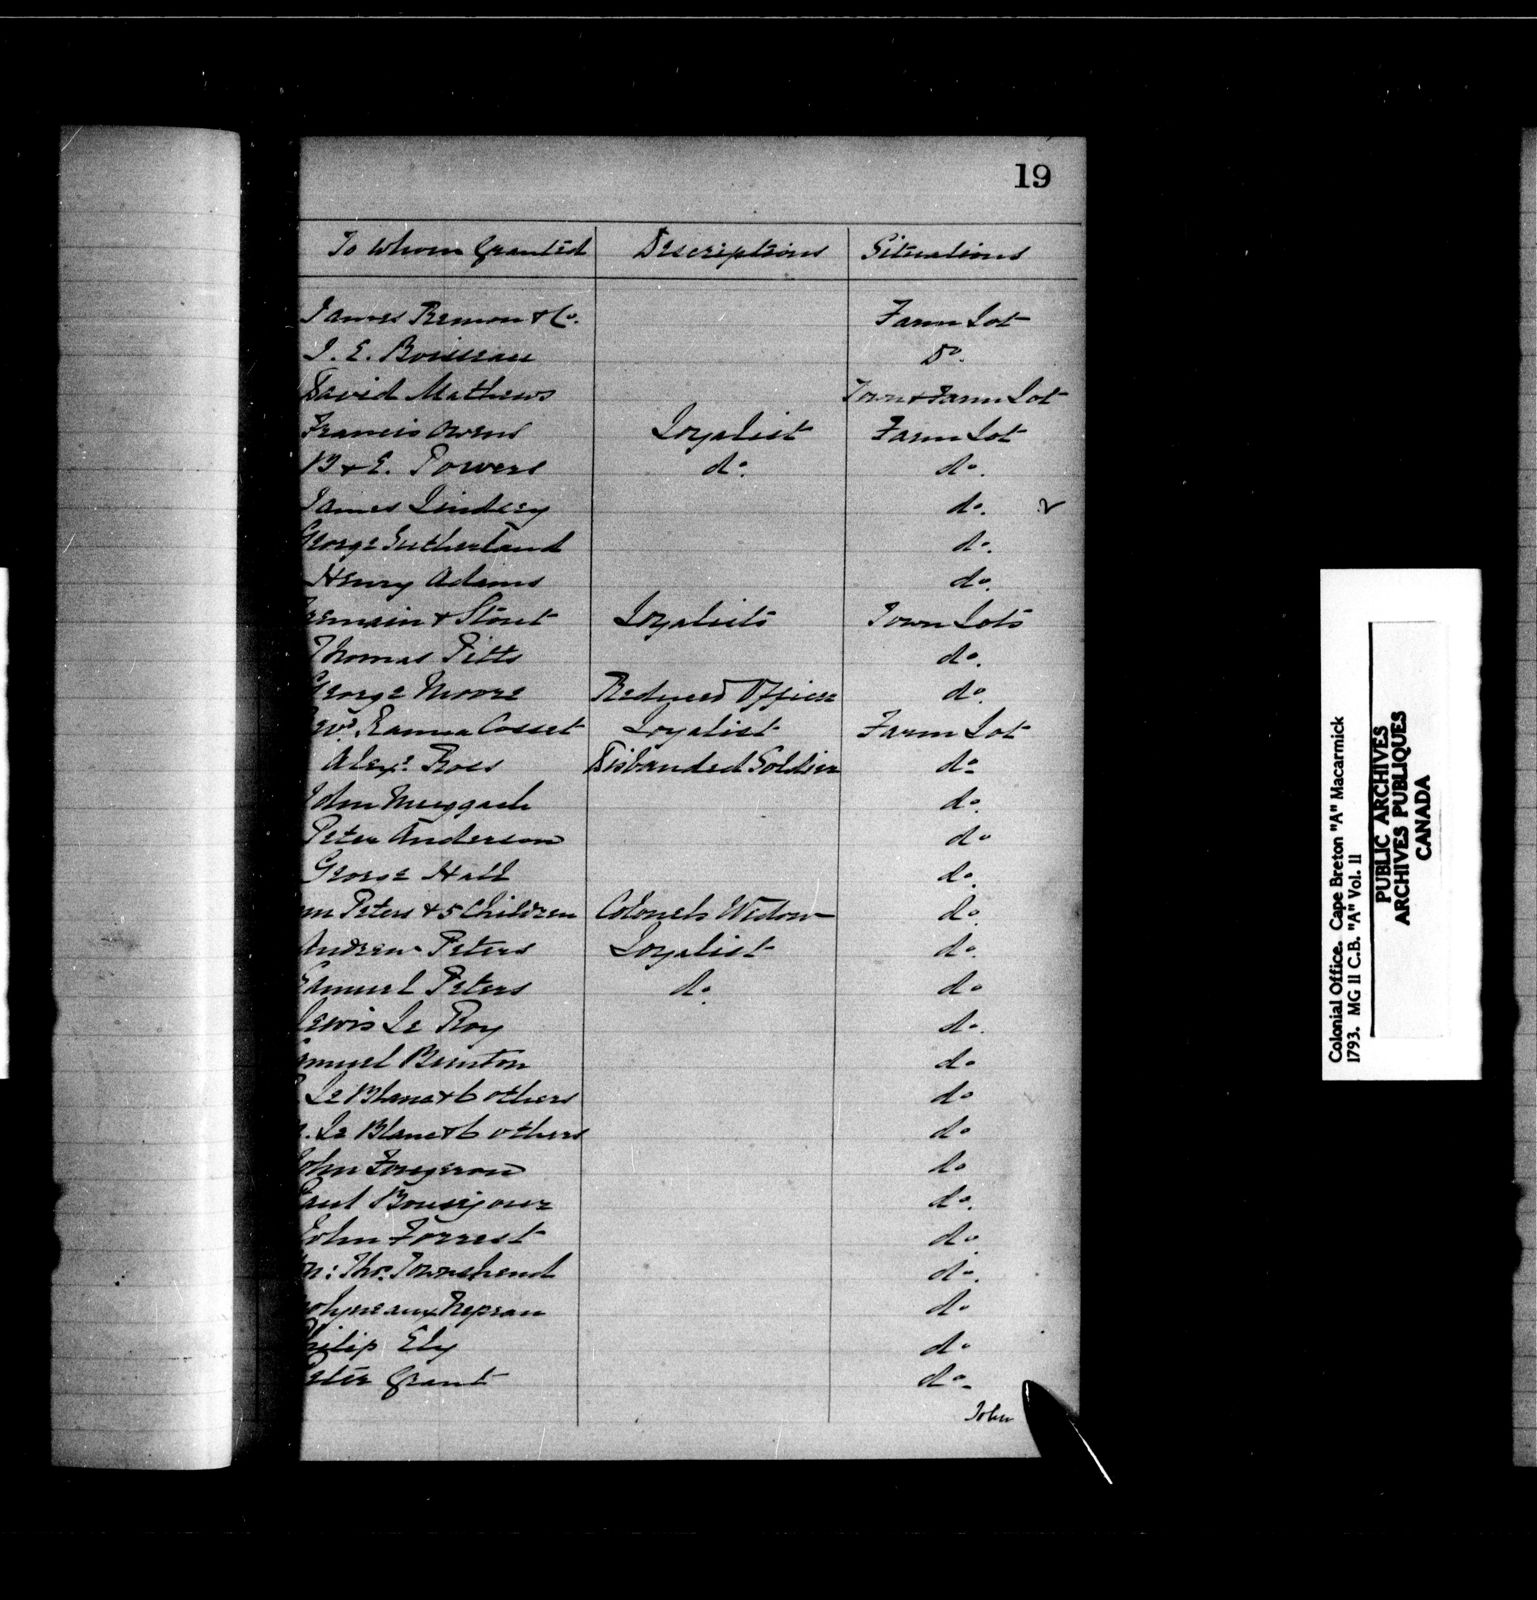 19
To Whom Granted Descriptions Situations
James Remon & Co. Farm Lot
J. E. Boisseau Do.
David Mathews Town & Farm Lot
Francis Owens Loyalist Farm Lot
B & E. Powers do. do.
James Lindsey do.
George Sutherland do.
Henry Adams do.
Tremain & Stout Loyalists Town Lots
Thomas Pitts do.
George Moore Reduced Officer do.
Revd. Ranna Cosset Loyalist Farm Lot
Alexr. Ross Disbanded Soldier do.
John Muggach do.
Peter Anderson do
George Hall do.
Peters & 5 Children Colonels Widow do.
Andrew Peters Loyalist do.
Samuel Peters do. do
Lewis Le Roy do.
Samuel do
Le Blanc & 6 others do
Le Blanc & 6 others do
John Fougeron do
Paul do.
John Forrest do.
Thos. Townshend do.
Nepean do
Philip Ely do
Peter Grant do.
John
Colonial Office. Cape Breton "A" Macarmick
1793. MG 11 C.B. "A" Vol. 11
PUBLIC ARCHIVES
ARCHIVES PUBLIQUES
CANADA